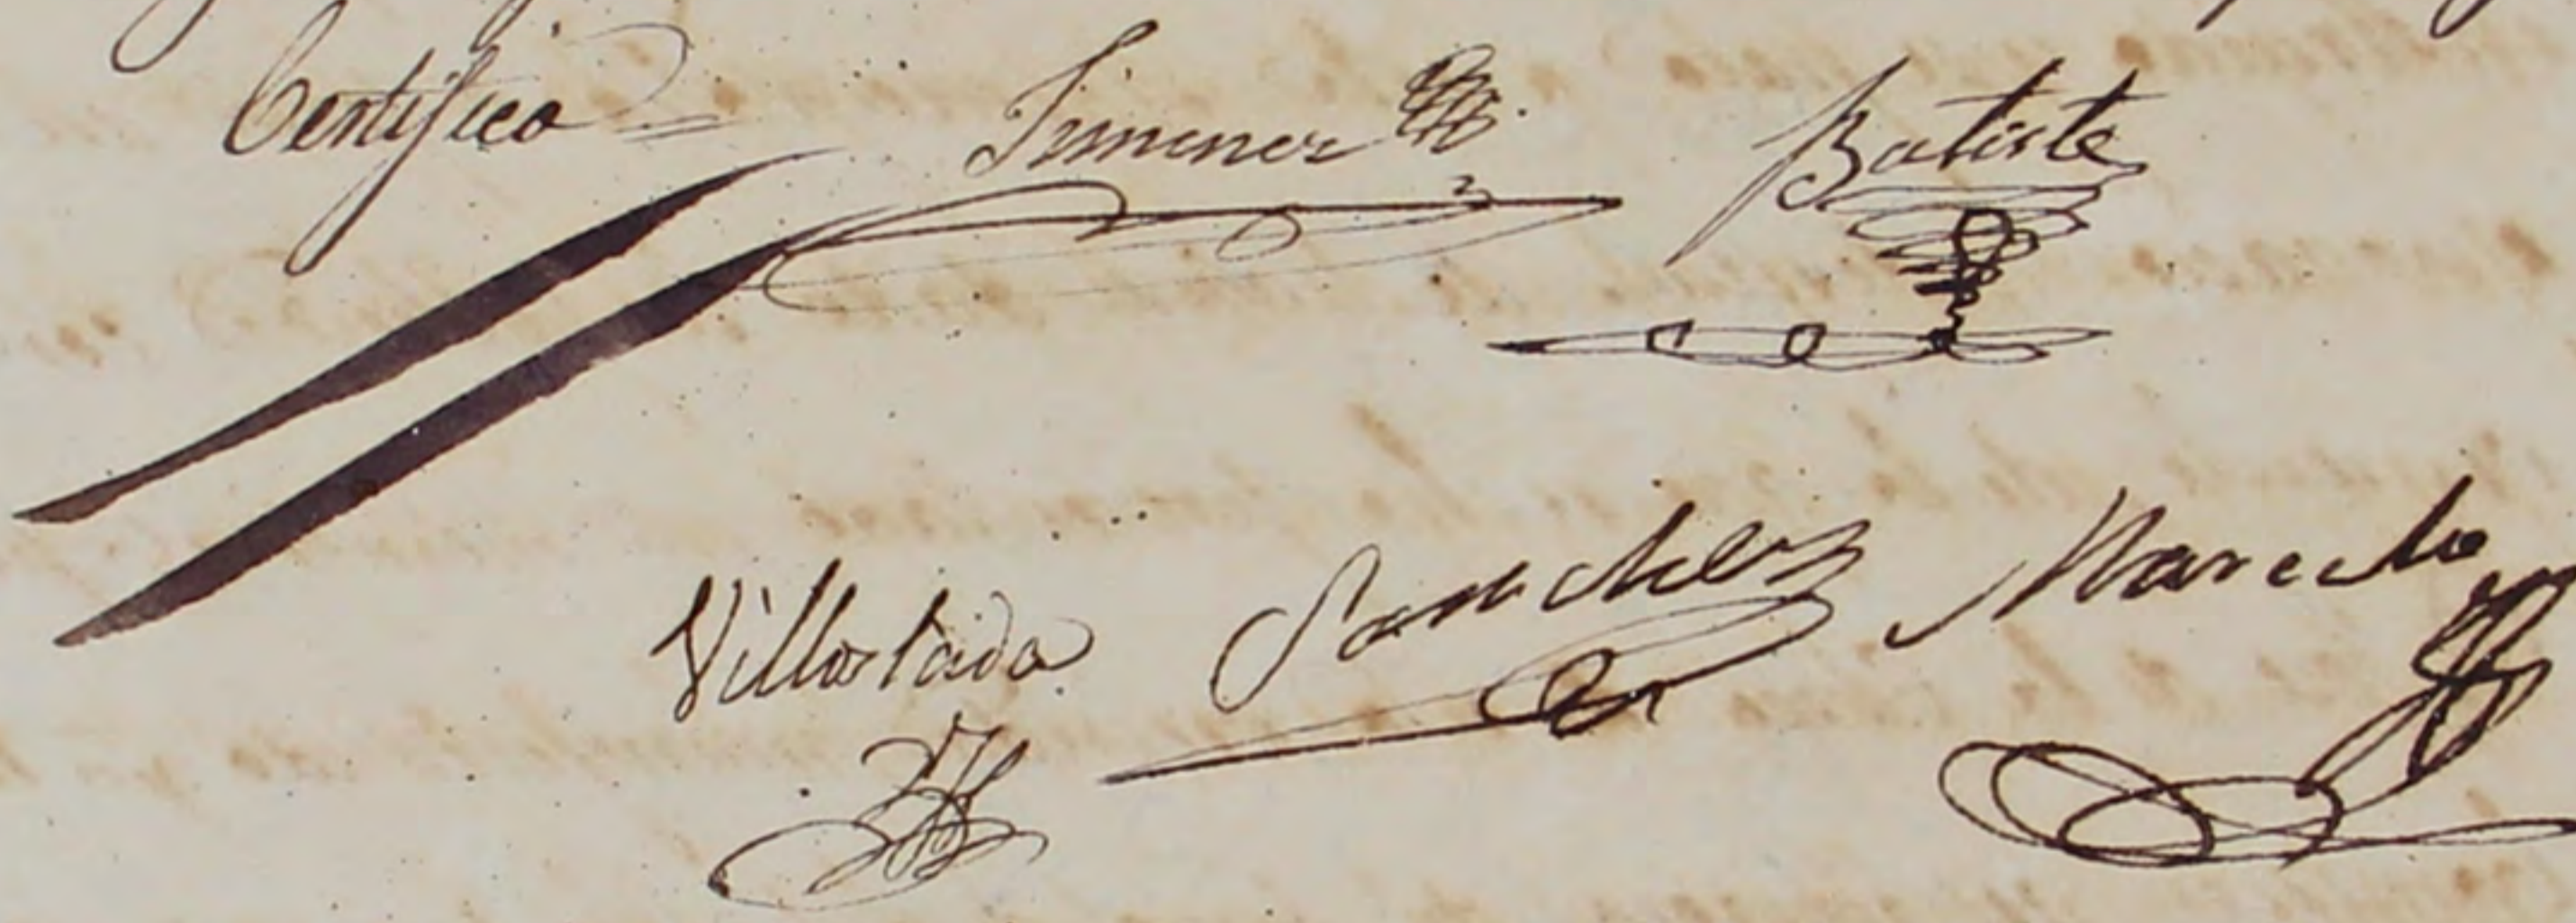 Certifico = Jimenez Batiste
Villastada Sanchez Marecho